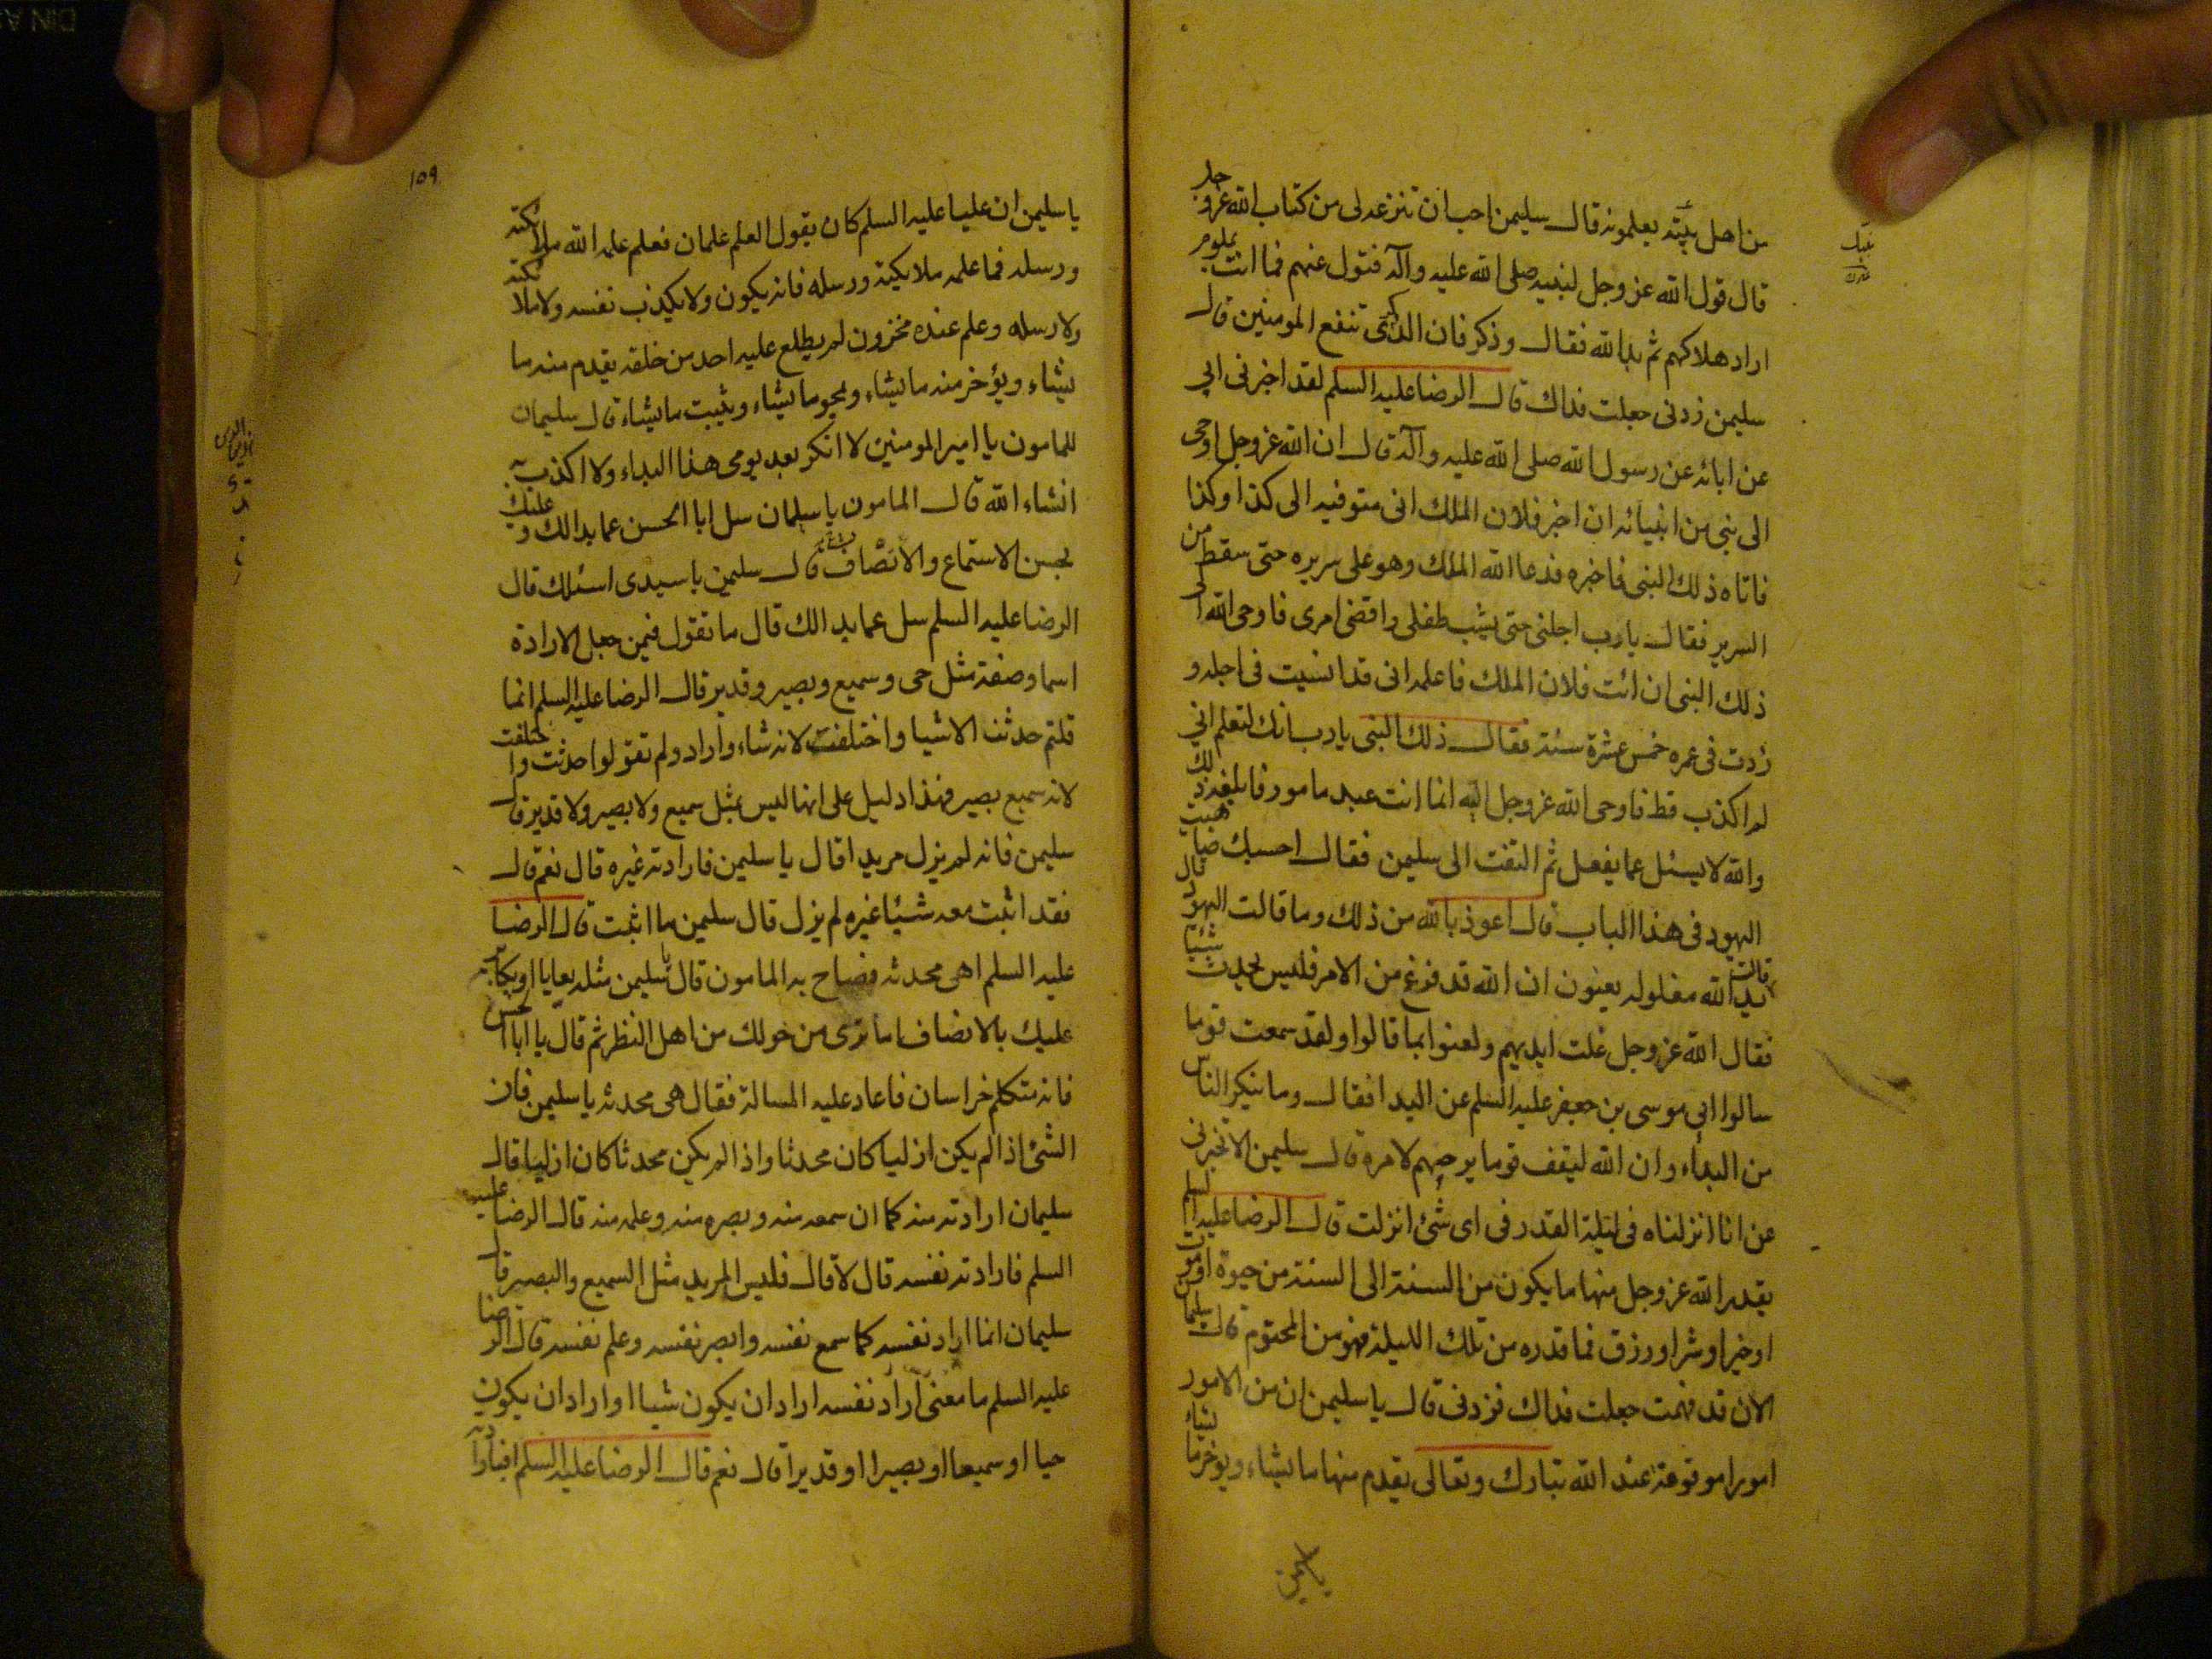 من اهل بيته يعلمونه قال سليمن احب ان تنزعه لى من كتاب الله عز وجل
قال قول الله عز وجل لنبيه صلى الله عليه وآله فتول عنهم فما انت بملوم
اراد هلاكهم ثم بدا لله فقال وذكر فان الذكرى تنفع المومنين قال
سليمن زدنى جعلت فداك قال الرضا عليه السلم لقد اخبرنى ابي
عن ابائه عن رسول الله صلى الله عليه وآله قال ان الله عز وجل اوحى
الى نبى من انبيائه ان اخبر فلان الملك انى متوفيه الى كذا وكذا
فاتاه ذلك النبى فاخبره فدعا الله الملك وهو على سريره حتى سقط من
السرير فقال يا رب اجلنى حتى يشب طفلى واقضى امرى فاوحى الله الى
ذلك النبى ان ائت فلان الملك فاعلمه انى قد انسيت فى اجله و
زدت فى عمره خمس عشرة سنة فقال ذلك النبى يا رب انك لتعلم انى
لم اكذب قط فاوحى الله عز وجل اليه انما انت عبد مامور فابلغه ذلك
والله لا يسئل عما يفعل ثم التفت الى سليمن فقال احسبك ضاهيت
اليهود فى هذا الباب قال اعوذ بالله من ذلك وما قالت اليهود قال
قالت يد الله مغلوله يعنون ان الله قد فرغ من الامر فليس يحدث شيئا
فقال الله عز وجل غلت ايديهم ولعنوا بما قالوا ولقد سمعت قوما
سالوا ابى موسى بن جعفر عليه السلم عن البدا فقال وما ينكر الناس
من البداء وان الله ليقف قوما يرجيهم لامره قال سليمن الا تخبرنى
عن انا انزلناه فى ليلة القدر فى اى شئ انزلت قال الرضا عليه السلم
يقدر الله عز وجل منها ما يكون من السنة الى السنة من حيوة او موت
او خير او شر او رزق فما قدره من تلك الليلة فهو من المحتوم قال سليمان
الان قد فهمت جعلت فداك فزدنى قال يا سليمن ان من الامور
امورا موقوفة عند الله تبارك وتعالى يقدم منها ما يشاء ويوخر ما يشاء
يا سليمن
١٥٩
يا سليمن ان عليا عليه السلم كان يقول العلم علمان فعلم علمه الله ملائكته
ورسله فما علمه ملايكته ورسله فانه يكون ولا يكذب نفسه ولا ملائكته
ولا رسله وعلم عنده مخزون لم يطلع عليه احد من خلقه يقدم منه ما
يشاء ويؤخر منه ما يشاء ويمحو ما يشاء ويثبت ما يشاء قال سليمان
للمامون يا امير المومنين لا انكر بعد يومى هذا البداء ولا اكذب به
انشاء الله قال المامون يا سليمان سل ابا الحسن عما بدا لك وعليك
بحسن الاستماع والانصاف قال سليمن يا سيدى اسئلك قال
الرضا عليه السلم سل عما بدا لك قال ما تقول فيمن جعل الارادة
اسما وصفة مثل حى وسميع وبصير وقدير قال الرضا عليه السلم انما
قلتم حدثت الاشيا واختلفت لانه شاء واراد ولم تقولوا حدثت واختلفت
لانه سميع بصير فهذا دليل على انها ليس بمثل سميع ولا بصير ولا قدير قال
سليمن فانه لم يزل مريدا قال يا سليمن فارادته غيره قال نعم قال
فقد اثبت معه شيئا غيره لم يزل قال سليمن ما اثبت قال الرضا
عليه السلم اهى محدثه فصاح به المامون قال يا سليمن مثله يعايا او يكابر
عليك بالانصاف اما ترى من حولك من اهل النظر ثم قال يا ابا الحسن
فانه متكلم خراسان فاعاد عليه المسالة فقال هى محدثه يا سليمن فان
الشئ اذا لم يكن ازليا كان محدثا واذا لم يكن محدثا كان ازليا قال
سليمان ارادته منه كما ان سمعه منه وبصره منه وعلمه منه قال الرضا عليه
السلم فارادته نفسه قال لا قال فليس المريد مثل السميع والبصير قال
سليمان انما اراد نفسه كما سمع نفسه وابصر نفسه وعلم نفسه قال الرضا
عليه السلم ما معنى اراد نفسه اراد ان يكون شيا او اراد ان يكون
حيا او سميعا او بصيرا او قديرا قال نعم قال الرضا عليه السلم افبارادته